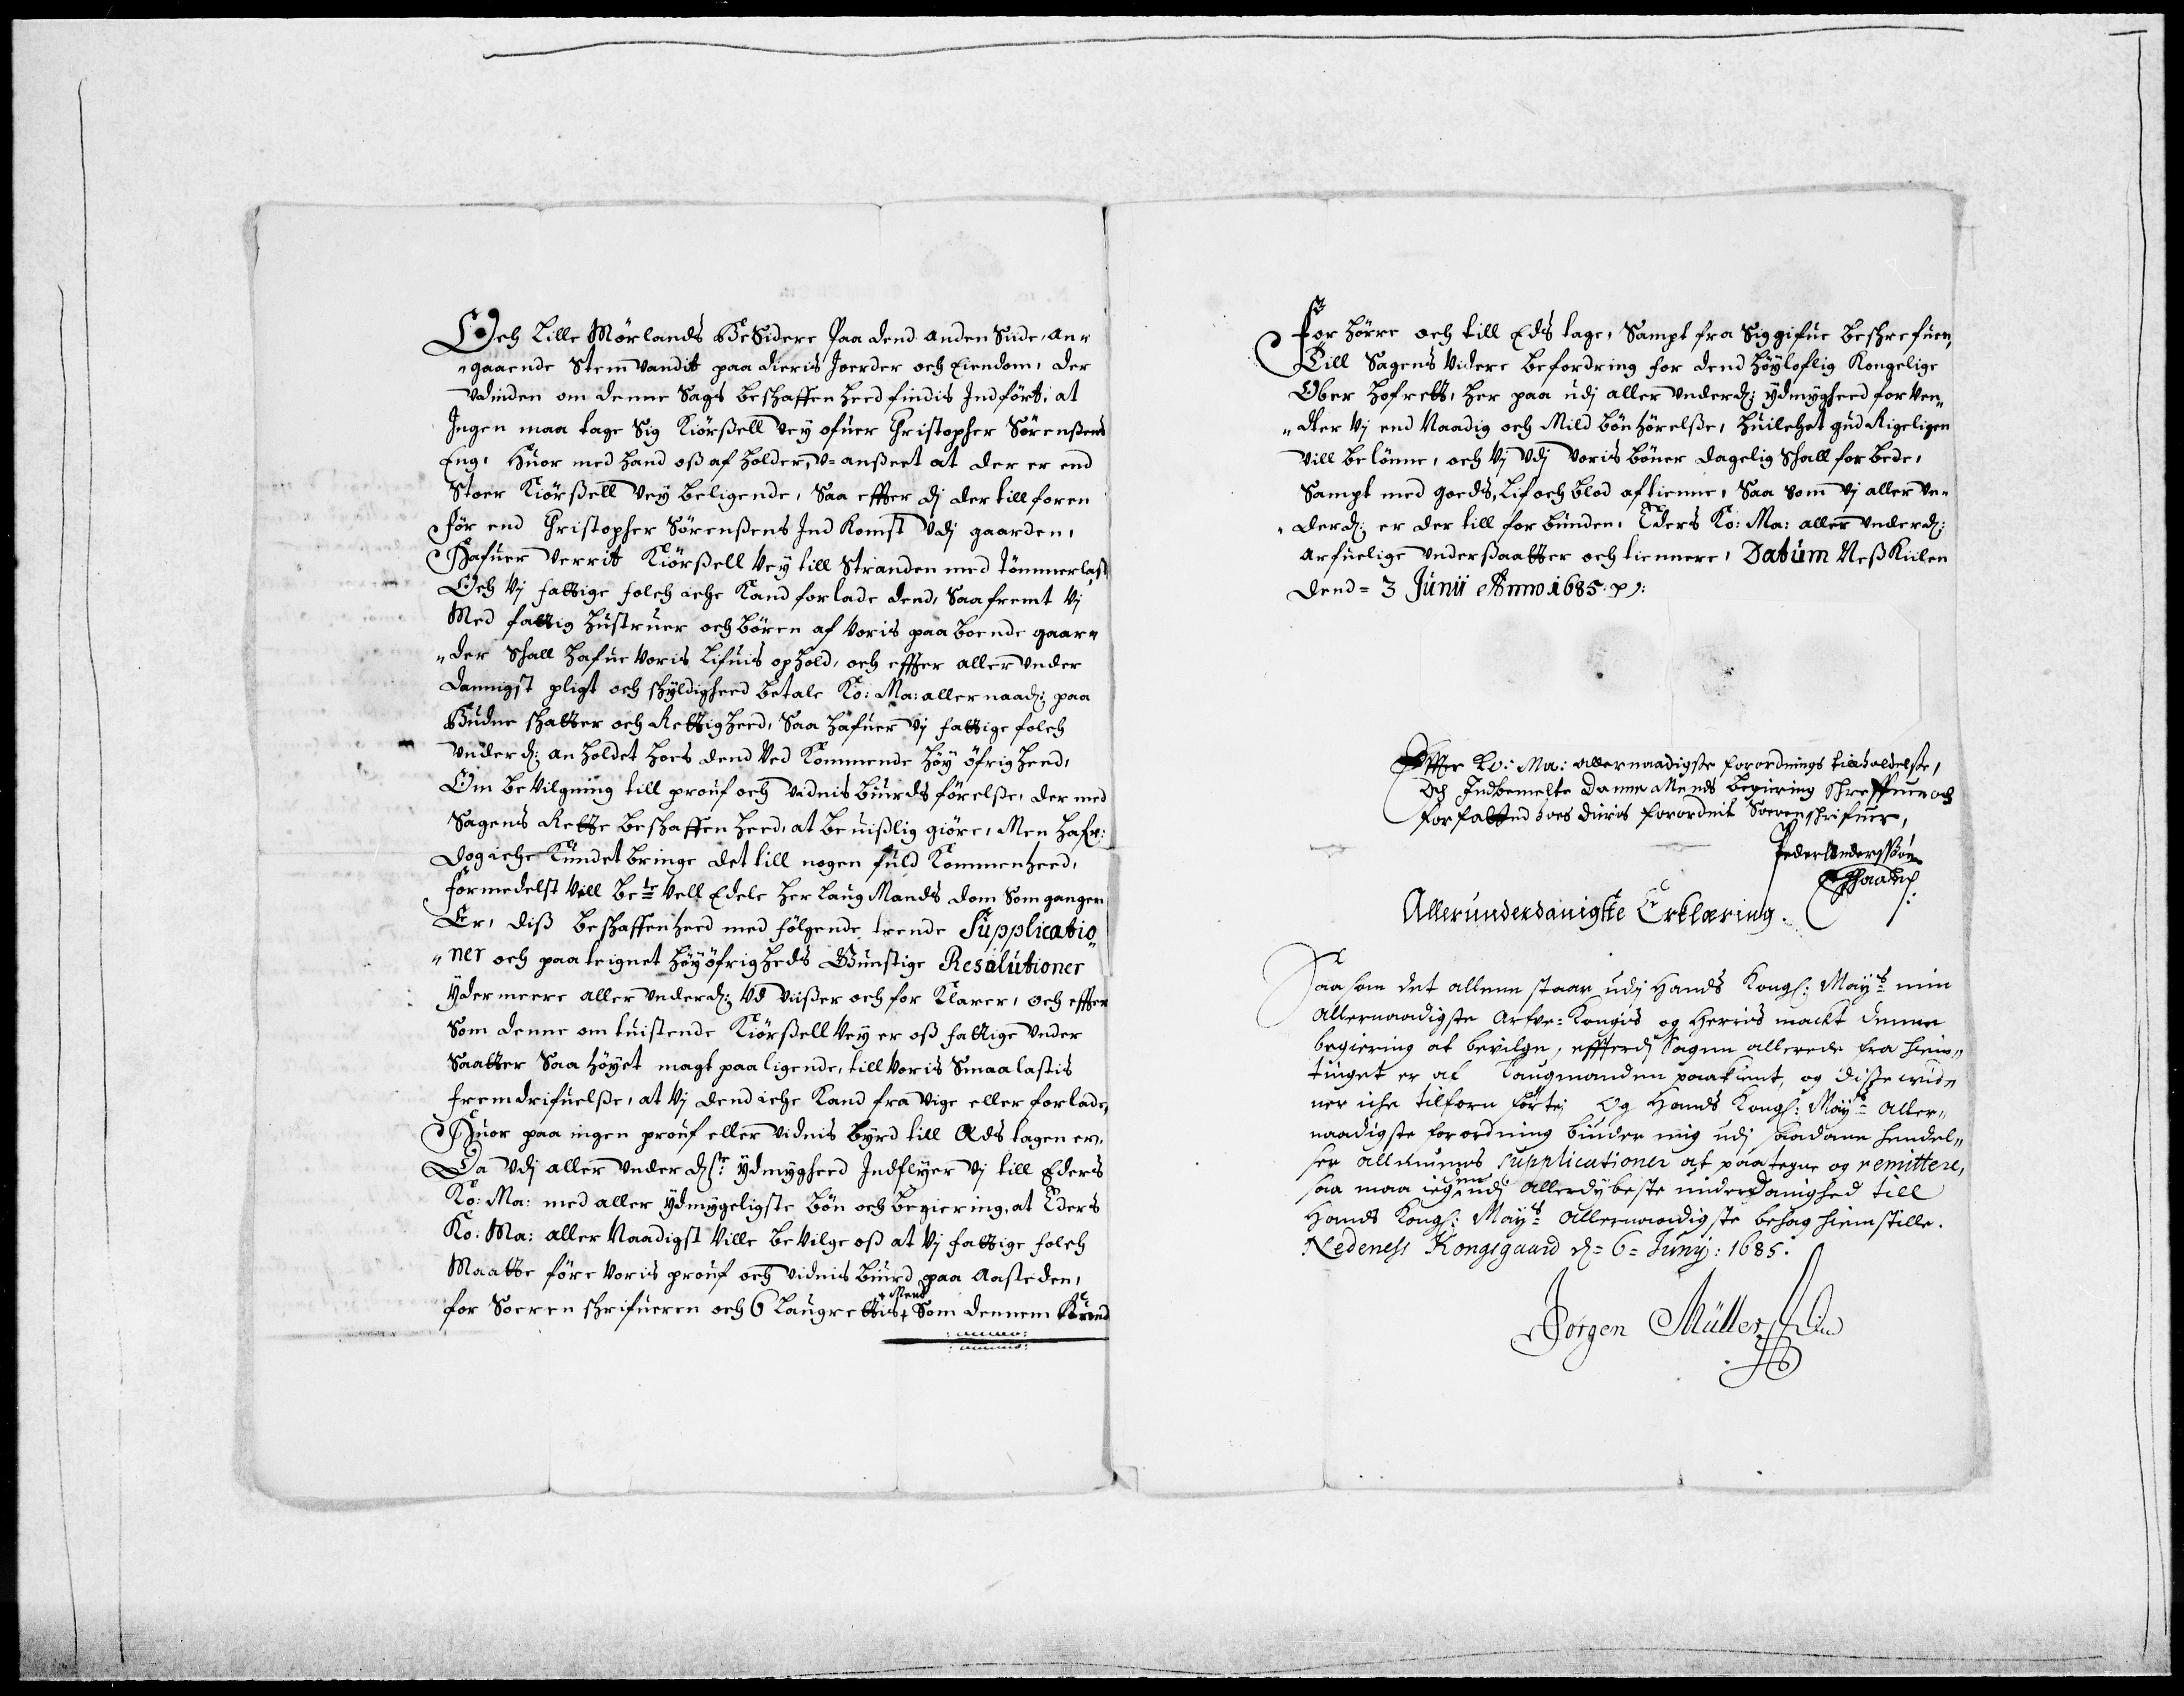 Och Lille Mörlands Besidere Paa dend anden Siide, an„
„gaaende Stemvandit paa dieris Joerder och Eiendom, der
vdinden om denne Sags beskaffenheed findis Indfört, at
Ingen maa tage Sig Kiörsell vey ofuer Christopher Sörenßens
Eng, Huor med hand oß af holder, v=anßeet at der er end
Stoer Kiörßell vey beligende, Saa effter dj der till foren
för end Christopher Sörenßens Ind Komst vdj gaarden,
Hafuer verrit Kiörßell vey till Stranden med tömmerlast
Och vj fattige folch iche Kand forlade dend, Saafremt vj
Med fattig hustruer och börn af voris paa boende gaar„
„der Skall hafue voris Lifuis ophold, och effter aller vnder
dannigst pligt och skyldigheed betale Ko: Ma: allernaad: paa
Budne skatter och Rettigheed, Saa hafuer vj fattige folch
vnderd: anholdet hoes dend ved Kommende höy öfrigheed,
Om bevilgning till prouf och vidnis biurds förelße, der med
Sagens Rette beskaffenheed, at beuißlig giöre, Men hafr:
dog iche Kundet bringe det till nogen fuld Kommenheed,
formedelst vell Bete Vell Edele Her Laug Mands dom Som gangen
Er, diß beskaffenheed med fölgende trende Supplicatio„
„ner och paateignet höyöfrigheds Gunstige Resolutioner
ydermeere aller vnderd: vd viißer och for Klarer, och effter
Som denne omtuistende Kiörßell vey er oß fattige vnder
Saatter Saa höyet magt paaligende, till voris Smaa lastis
fremdrifuelße, at vj dend iche Kand fra vige eller forlade,
Huor paa ingen prouf eller vidnis byrd till Eds tagen er,
Da vdj aller vnder dste ydmygheed Indflyer vj till Eders
Ko: Ma: med aller ydmygeligste bön och begiering, at Eders
Ko: Ma: aller Naadigst ville bevilge oß at vj fattige folch
Maatte före voris prouf och vidnis biurd paa Aasteden,
+ Mend
for Soerenskrifueren och 6 Laugrettis + Som dennem Kunde
for hörre och till Eds tage, Sampt fra Sig gifue beskrefuen,
Till Sagens videre befordring for dend höyloflig Kongelige
Ober hofrett, her paa udj aller vnderd: ydmygheed forven„
„dter vj end Naadig och Mild bön hörelße, huilchet gud Rigeligen
vill belönne, och vj vdj voris böner dagelig Skall for bede,
Sampt med goeds, Lif och blod aftienne, Saa Som vj aller vn„
„derd: er der till forbunden. Eders Ko: Ma: aller vnderd:
arfuelige vnderßaatter och tiennere, Datum Neß Kiilen
dend = 3 Junii Anno 1685:
Effter Ko: Ma: allernaadigste forordnings tilholdelße,
Och Indbemelte Danne Mends begiering schreffuen och
forfatted hoes dieris forordnit Sorenschrifuer,
Peder Anderßön
Allerunderdanigste Erklæring.
Saasom det allene staar udj Hands Kongl: Mayts min
Allernaadigste Arfve-Kongis og Herris mackt denne
begiering at bevilge, effterdj Sagen allerede fra hiem„
tinget er af Laugmanden paakient, og diße vid„
ner iche tilforn förte; Og Hands Kongl: Mayts Aller„
naadigste forordning binder mig udj saadane hendel„
ser allmuens supplicationer at paategne og remittere,
saa maa ieg den udj Allerdybeste underdanighed till
Hands Kongl: Mayts Allernaadigste behag hiemstille.
Nedeness Kongsgaard d= 6= Junij: 1685.
Jörgen Müller